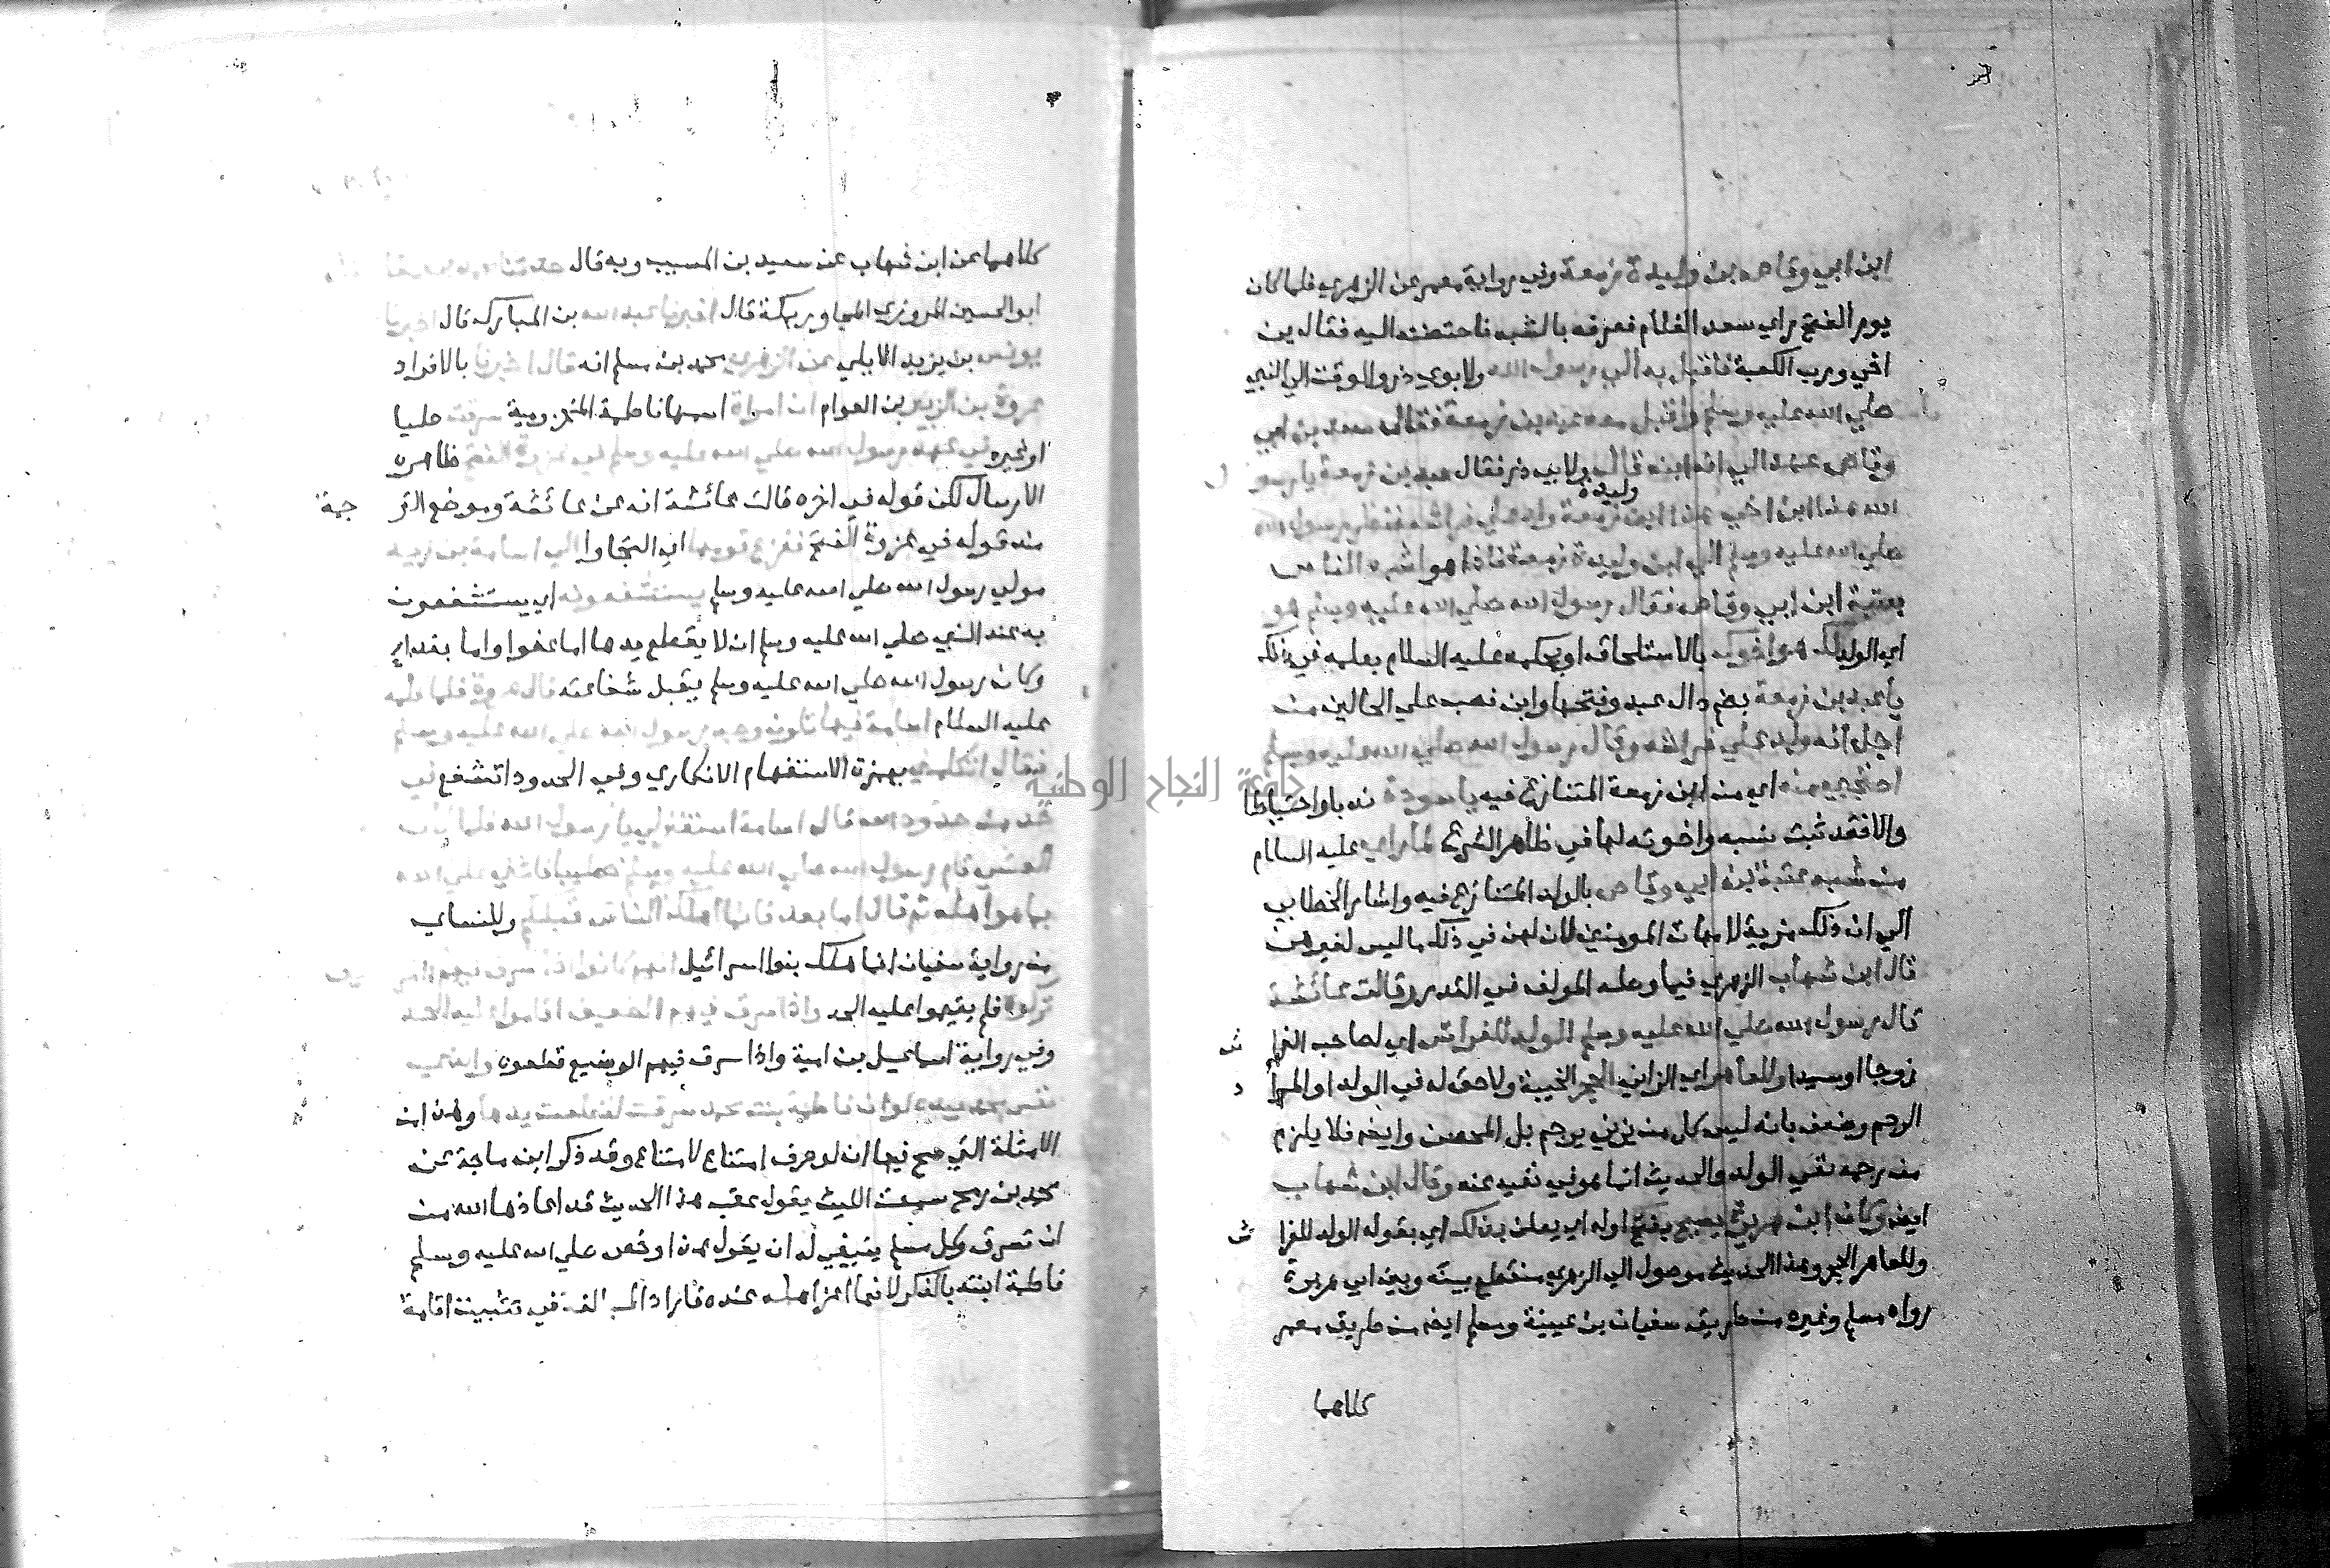 ابن ابي وقاص بن وليدة زمعة وفي رواية معمر عن الزهري فلما كان
يوم الفتح راي سعد الغلام فعرفه بالشبه فاحتضنه اليه فقال بن
اخي ورب الكعبة فاقبل به الي رسول الله ولابوي ذر والوقت الي النبي
صلي الله عليه وسلم واقبل معه عبد بن زمعة فقال سعد بن ابي
وقاص عهد الي انه ابنه قال ولابي ذر فقال عبد بن زمعة يا رسول
وليدة
الله هذا ابن اخي هذا ابن زمعة ولد علي فراشه فنظر رسول الله
صلي الله عليه وسلم الي ابن وليدة زمعة فاذا هو اشبه الناس
بعتبة ابن ابي وقاص فقال رسول الله صلي الله عليه وسلم هو
اي الولد لك هو اخوك بالاستلحاق او بحكمه عليه السلام بعلمه في ذلك
يا عبد بن زمعة بضم دال عبد وفتحها وابن نصب علي الحالين من
اجل انه ولد علي فراشه وقال رسول الله صلي الله عليه وسلم
احتجبي منه اي من ابن زمعة المتنازع فيه يا سودة ندبا واحتياطا
والا فقد ثبت نسبه واخوته لها في ظاهر الشرع لما راي عليه السلام
من شبه عتبة بن ابي وقاص بالولد المتنازع فيه واشار الخطابي
الي ان ذلك مزية لامهات المومنين لان لهن في ذلك ما ليس لغيرهن
قال ابن شهاب الزهري فيما وصله المولف في القدر وقالت عائشة
قال رسول الله صلي الله عليه وسلم الولد للفراش اي لصاحب الفرا ش
زوجا او سيدا وللعاهر اي الزاني الحجر الخيبة ولا حق له في الولد او المرا د
الرجم وضعف بانه ليس كل من يزني يرجم بل المحصن وايضا فلا يلزم
من رجمه نفي الولد والحديث انما هو في نفيه عنه وقال ابن شهاب
ايضا وكان ابن هريرة يصيح بفتح اوله اي يعلن بذلك اي بقوله الولد للفرا ش
وللعاهر الحجر وهذا الحديث موصول الي الزهري منقطع بينه وبين ابي هريرة
رواه مسلم وغيره من طريق سفيان بن عيينة ومسلم ايضا من طريق معمر
كلاهما
كلاهما عن ابن شهاب عن سعيد بن المسيب وبه قال حدثنا
ابو الحسين المروزي المجاور بمكة قال اخبرنا عبد الله بن المبارك قال اخبرنا
يونس بن يزيد الايلي عن الزهري محمد بن مسلم انه قال اخبرني بالافراد
عروة بن الزبير بن العوام ان امراة اسمها فاطمة المخزومية سرقت حليا
او غيره في عهد رسول الله صلي الله عليه وسلم في غزوة الفتح ظاهره
الارسال لكن قوله في اخره قالت عائشة انه عن عائشة وموضع التر جمة
منه قوله في غزوة الفتح ففزع قومها اي التجاوا الي اسامة بن زيد
مولي رسول الله صلي الله عليه وسلم يستشفعونه اي يستشفعون
به عند النبي صلي الله عليه وسلم ان لا يقطع يدها اما عفوا واما بفداء
وكان رسول الله صلي الله عليه وسلم يقبل شفاعته قال عروة فلما كلمه
عليه السلام اسامة فيها تلون وجه رسول الله صلي الله عليه وسلم
فقال اتكلمني بهمزة الاستفهام الانكاري وفي الحدود اتشفع في
حد من حدود الله قال اسامة استغفر لي يا رسول الله فلما كان
العشي قام رسول الله صلي الله عليه وسلم خطيبا فاثني علي الله
بما هو اهله ثم قال اما بعد فانما اهلك الناس قبلكم وللنساي
من رواية سفيان انما هلك بنوا اسرائيل انهم كانوا اذا سرق فيهم الشر يف
تركوه فلم يقيموا عليه الحد واذا سرق فيهم الضعيف اقاموا عليه الحد
وفي رواية اسماعيل بن امية واذا سرق فيهم الوضيع قطعوه والذي
نفس محمد بيده لو ان فاطمة بنت محمد سرقت لقطعت يدها وهذا من
الامثلة التي صح فيها ان لو حرف امتناع لامتناع وقد ذكر ابن ماجة عن
محمد بن رمح سمعت الليث يقول عقب هذا الحديث قد اعاذها الله من
ان تسرق وكل مسلم ينبغي له ان يقول هذا وخص صلي الله عليه وسلم
فاطمة ابنته بالذكر لانها اعز اهله عنده فاراد المبالغة في تثبيت اقامة
جامعة النجاح الوطنية